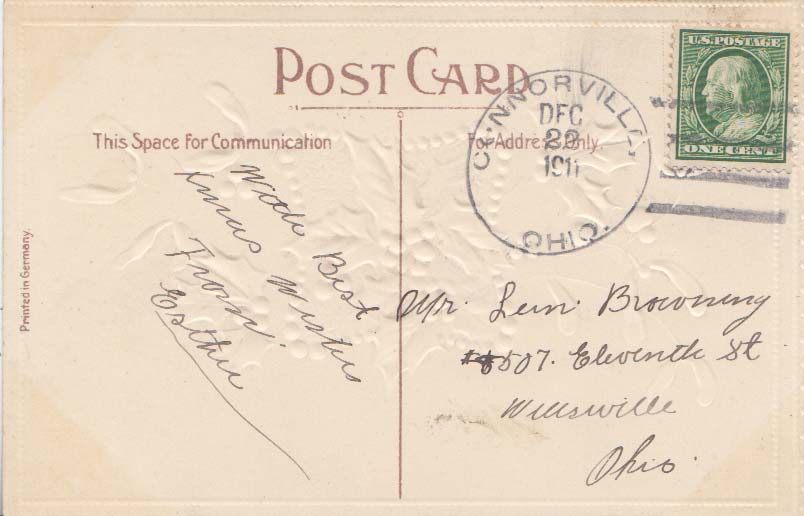 POST CARD
This Space for Communication
For Address Only.
CONNORVILLE,
DEC
22
1911
OHIO.
U.S. POSTAGE
ONE CENT
Printed in Germany.
With Best
Xmas Wishes
From
Esther
Mr. Lem. Browning
507. Eleventh St
Wellsville
Ohio.